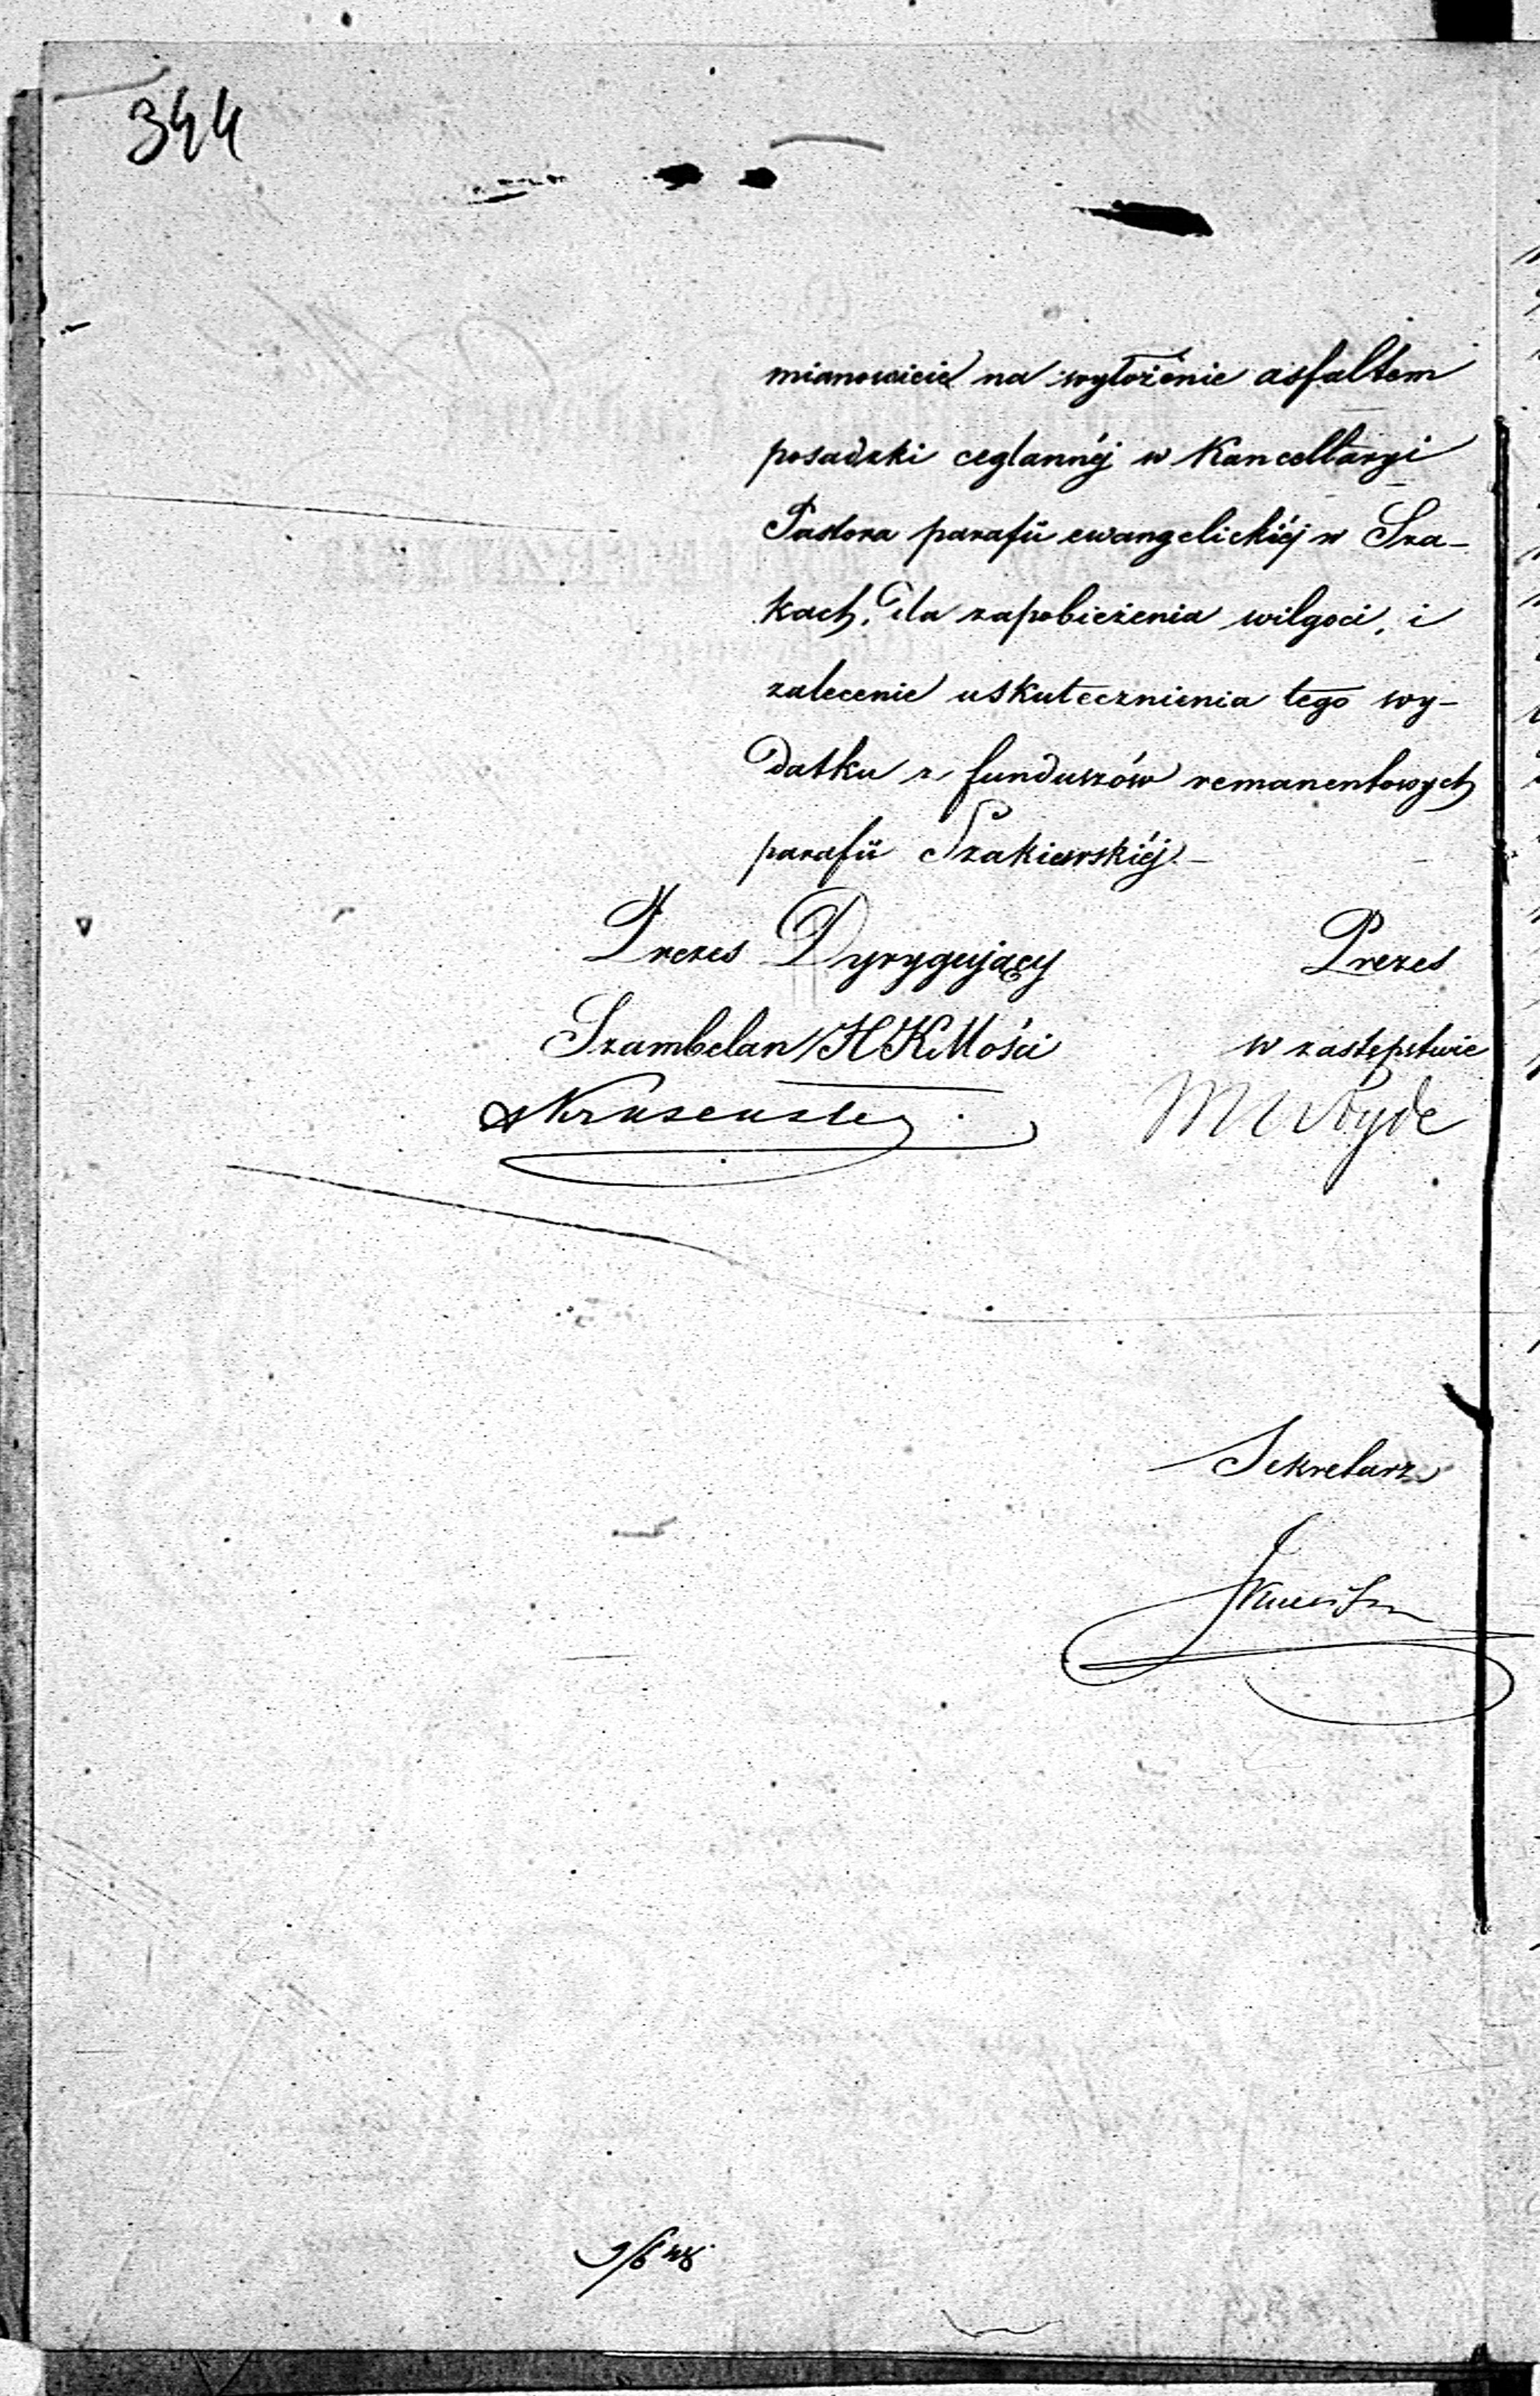 344
mianowicie na wyłożenie asfaltem
posadzki ceglannéj w Kancellaryi
Pastora parafii ewangelickiéj w Sza-
kach, dla zapobieżenia wilgoci, i
zalecenie uskutecznienia tego wy-
datku z funduszów remanentowych
parafii Szakiewskiéj.—
Prezes Dyrygujący Prezes
Szambelan JKMości w zastępstwie
Sekretarz